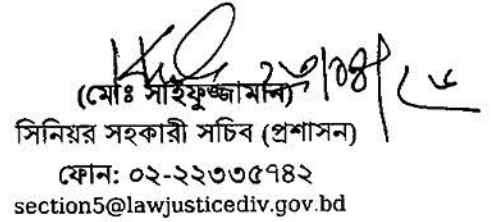 (মোঃ সাইফুজ্জামান)
সিনিয়র সহকারী সচিব (প্রশাসন)
ফোন: ০২-২২৩৩৫৭৪২
section5@lawjusticediv.gov.bd